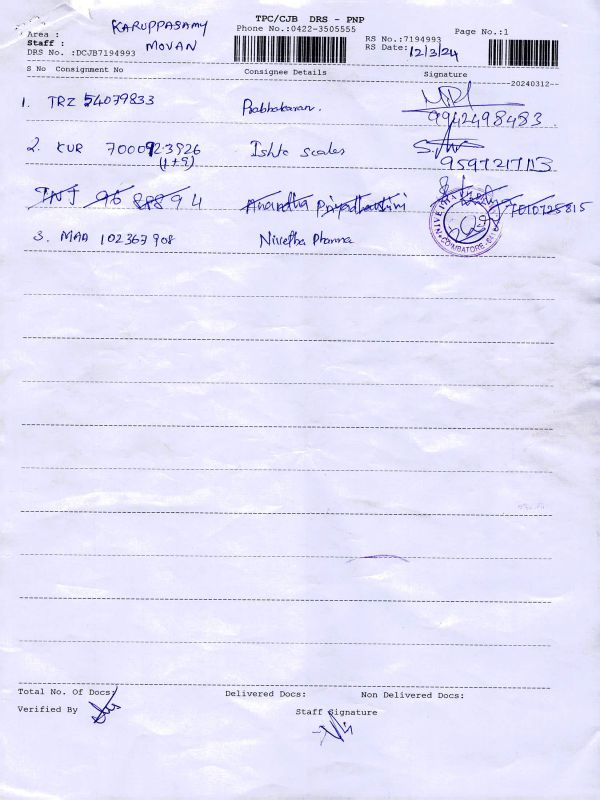 TPC/CJB DRS - PNP
Area : KARUPPASAMY
Phone No.:0422-3505555
Page No.:1
Staff : MOVAN
RS No.:7194993
RS Date: 12/3/24
DRS No. :DCJB7194993
S No Consignment No Consignee Details Signature
--20240312--
1. TRZ 54079833 Prabhakaran.
9942498483
2. KUR 7000923926 Ishta scales
(1+9) 9597217113
TNJ 96 88894 Anuradha Priyadharshini 7010725815
3. MAA 102367908 Nivetha Pharma
COIMBATORE
Total No. Of Docs: Delivered Docs: Non Delivered Docs:
Verified By
Staff Signature